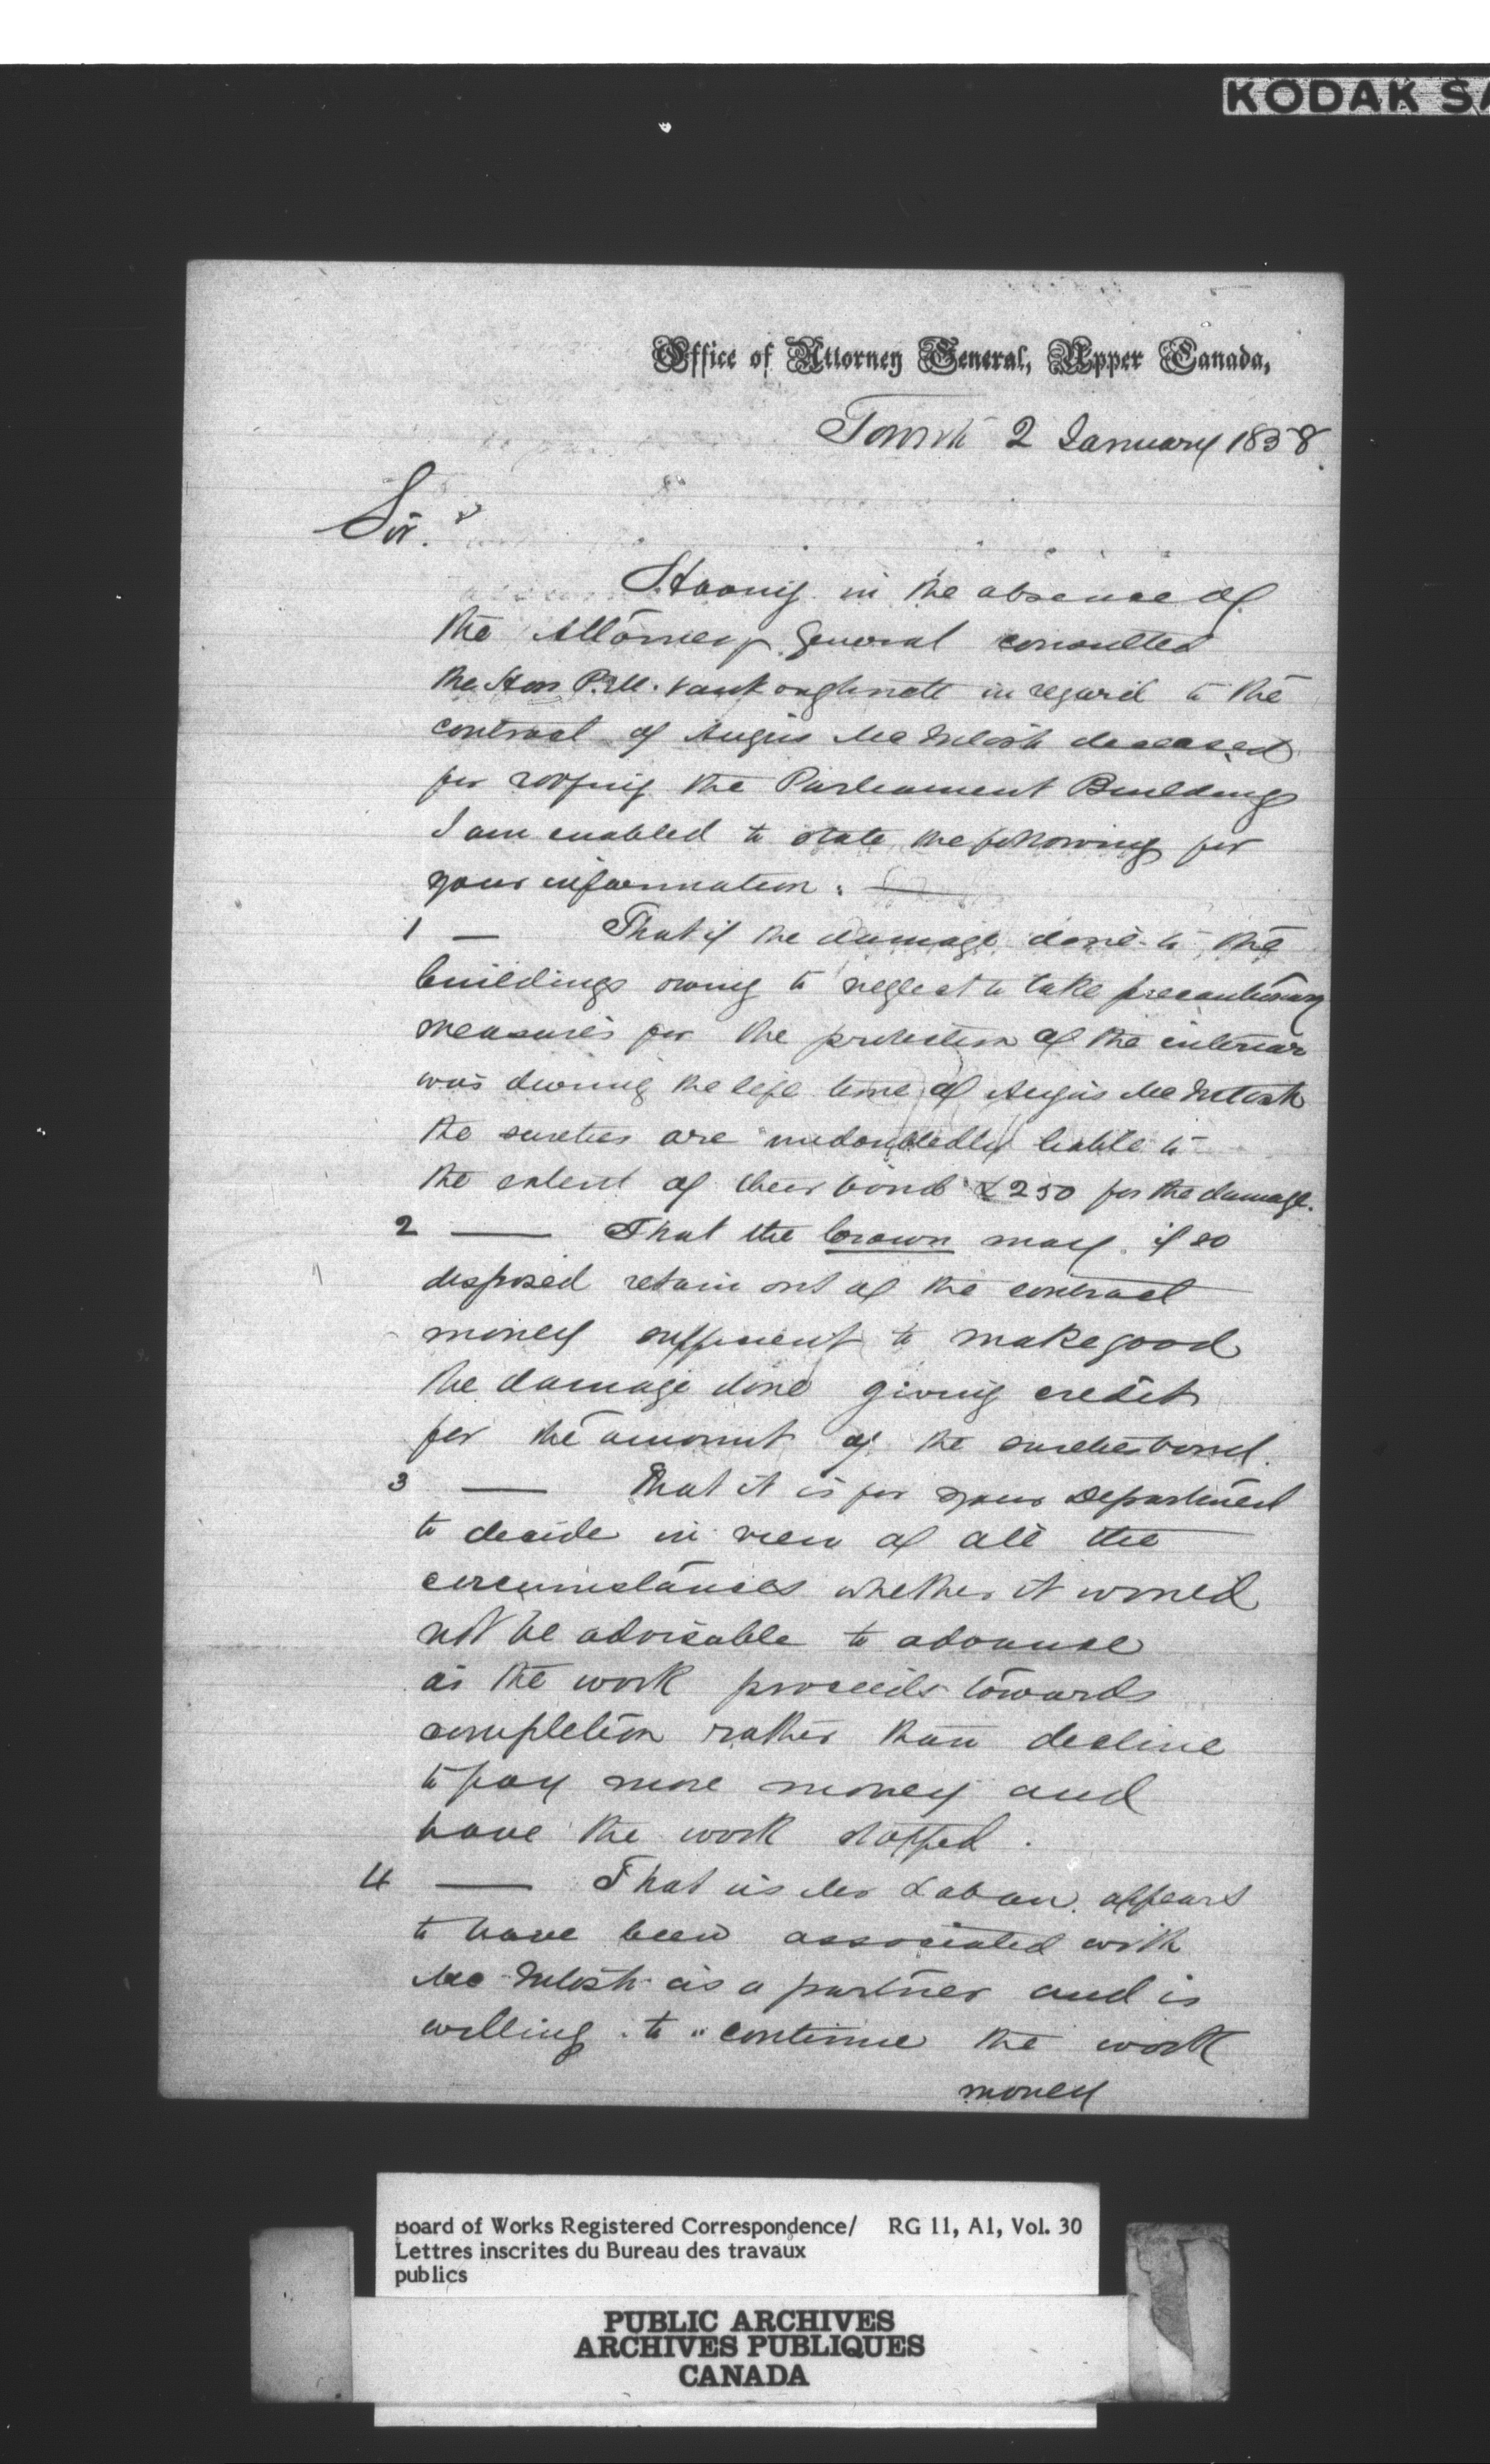 KODAK SA
Office of Attorney General, Upper Canada,
Toronto 2 January 1858.
Sir.
Having in the absence of
the Attorney General consulted
the Hon P.M. Vankoughnett in regard to the
contract of Angus McIntosh deceased
for roofing the Parliament Buildings
I am enabled to state the following for
your information:
1 — That if the damage done to the
buildings owing to neglect to take precautionary
measures for the protection of the interior
was during the life time of Angus McIntosh
the sureties are undoubtedly liable to
the extent of their bond £250 for the damage.
2 — That the Crown may if so
disposed retain out of the contract
money sufficient to make good
the damage done giving credit
for the amount of the sureties bond.
3 — That it is for your Department
to decide in view of all the
circumstances whether it would
not be advisable to advance
as the work proceeds towards
completion rather than decline
to pay more money and
have the work stopped.
4 — That as Mr appears
to have been associated with
McIntosh as a partner and is
willing to continue the work
money
Board of Works Registered Correspondence/ RG 11, A1, Vol. 30
Lettres inscrites du Bureau des travaux
publics
PUBLIC ARCHIVES
ARCHIVES PUBLIQUES
CANADA